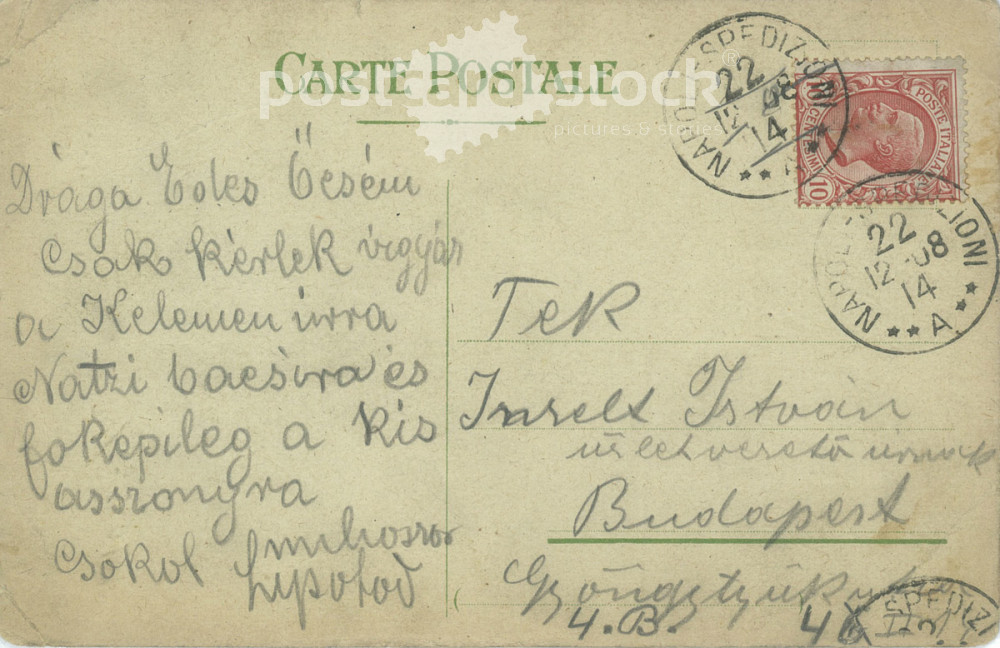 CARTE POSTALE
postcard stock®
pictures & stories
NAPOLI SPEDIZIONI
22
12 08
14
POSTE ITALIANE
10 CENTESIMI 10
NAPOLI SPEDIZIONI
22
12 08
14
** A **
Drága Edes Őcsém
Csak kérlek vigyáz
a Kelemen úrra
Natzi bacsira és
foképileg a kis
asszonyra
Csokol
Lipotod
Tek
Inselt István
üzletvezető úrnak
Budapest
Gyöngytyúk
4. B. 46
SPEDIZI